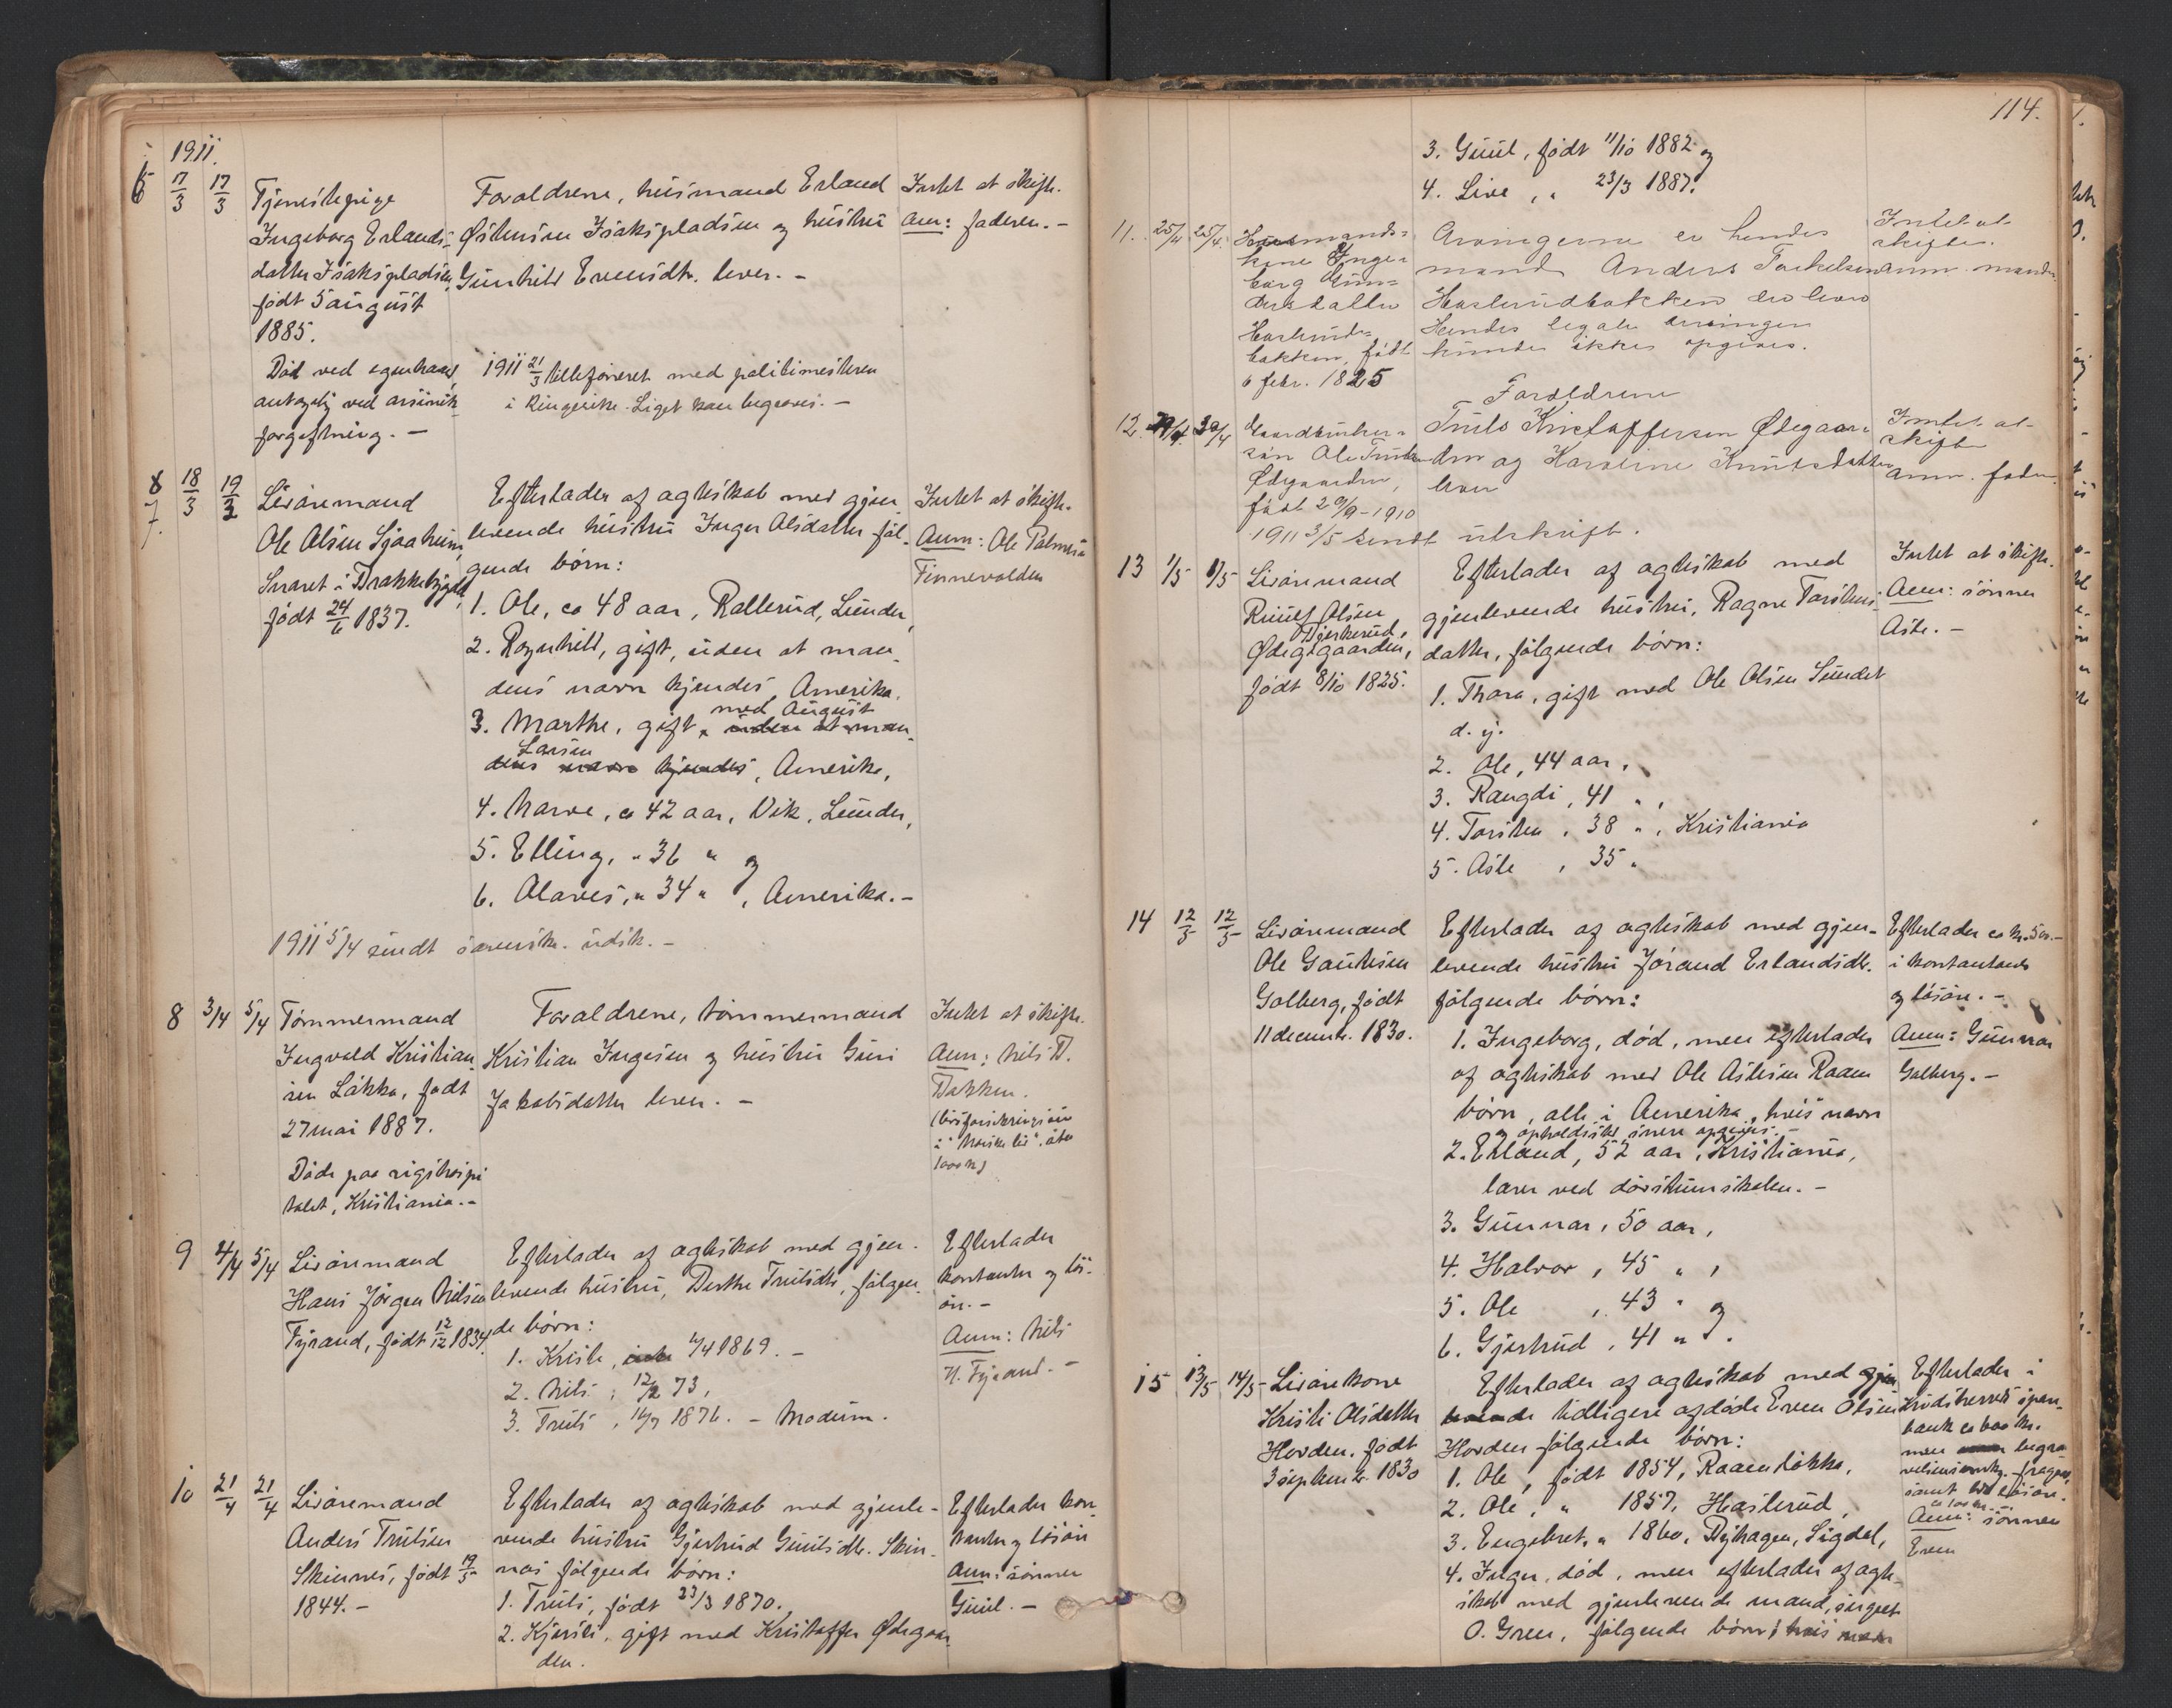 1911.
6 17/3 17/3 Tjenestepige
Ingeborg Erlands-
datter Isakspladsen,
født 5 august
1885.
Død ved egenhaand,
antagelig ved arsenik-
forgiftning. —
Forældrene, husmand Erland
Østensen Isakspladsen og hustru
Gunhild Evensdtr. lever. —
1911 21/3 telefoneret med politimesteren
i Ringerike. Liget kan begraves. —
Intet at skifte.
Anm: faderen. —
7. 18/3 19/3 Livøremand
Ole Olsen Sjøaheim,
Snaret i
født 24/6 1837.
Efterlader af ægteskab med gjen-
levende hustru Inger Olsdatter føl-
gende børn:
1. Ole, ca 48 aar, Rallerud, Lunder,
2. Ragnhild, gift, uden at man-
dens navn kjendes, Amerika.
3. Marthe, gift, med August
uden at man-
Larsen
dens navn kjendes, Amerika,
4. Narve, ca 42 aar, Vik, Lunder,
5. Elling, " 36 " og
6. Olaves, " 34 " , Amerika. —
Intet at skifte.
Anm: Ole Palmesen
Finnevolden
1911 5/4 sendt
8 3/4 5/4 Tømmermand
Ingvald Kristian-
sen Løkka, født
27 mai 1887.
Døde paa rigshospi
talet, Kristiania. —
Forældrene, tømmermand
Kristian Ingesen og hustru Guri
Jakobsdatter lever. —
Intet at skifte.
Anm: Nils T.
Bakken.
(livsforsikringsum
i "Norske liv", stor
1000 kr)
9 4/4 5/4 Livøremand
Hans Jørgen Nilsen
Fyrand, født 12/12 1834.
Efterlader af ægteskab med gjen-
levende hustru, Berthe Trulsdtr, følgen-
de børn:
1. Kristi, 4/4 1869. —
2. Nils, 12/2 73,
3. Truls, 16/7 1876. — Modum.
Efterlader
kontanter og løs-
øre. —
Anm: Nils
H. Fyrand. —
10 21/4 21/4 Livøremand
Anders Trulsen
Skinnes, født 19/5
1844. —
Efterlader af ægteskab med gjenle-
vende hustru Gjertrud Guulsdtr. Skin-
nes følgende børn:
1. Truls, født 23/3 1870.
2. Kjersti, gift med Kristoffer Ødegaar-
den.
Efterlader kon-
tanter og løsøre
Anm: sønnen
Guul. —
114.
3. Guul, født 11/10 1882 og
4. Live, " 23/3 1887.
11. 25/4 25/4. Husmands-
kone Inge-
borg Gun-
dersdatter
Haslerud-
bakken, født
6 febr. 1825
Arvingerne er hendes
mand Anders Torkelsen
Haslerudbakken der lever
Hendes legale arvinger
kunde ikke opgives.
Intet at
skifte.
anm. manden
12. 29/4. 30/4 Gaardbruker-
søn Ole Truls
Ødegaarden,
født 29/9 - 1910
Forældrene
Truls Kristoffersen Ødegaar-
den og Karoline Knutsdatter
lever
Intet at
skifte
anm. faderen.
1911 3/5 sendt utskrift.
13 1/5 1/5 Livøremand
Knut Olsen
Bjerkerud,
Ødegaarden,
født 8/10 1825.
Efterlader af ægteskab med
gjenlevende hustru, Ragne Torstens-
datter, følgende børn:
1. Thora, gift med Ole Olsen Sundet
d. y.
2. Ole, 44 aar,
3. Rangdi, 41 ",
4. Torsten, 38 ", Kristiania
5. Asle, 35 "
Intet at skifte.
Anm: sønnen
Asle. —
14 12/5 12/5 Livøremand
Ole Gautesen
Golberg, født
11 decembr. 1830.
Efterlader af ægteskab med gjen-
levende hustru Jørand Erlandsdtr.
følgende børn:
1. Ingeborg, død, men efterlader
af ægteskab med Ole Aslesen Raaen
børn, alle i Amerika, hvis navn
og opholdssted senere opgives. —
2. Erland, 52 aar, Kristiania,
lærer ved døvstumskolen. —
3. Gunnar, 50 aar,
4. Halvor, 45 ",
5. Ole, 43 " og
6. Gjertrud, 41 ".
Efterlader ca kr. 500.—
i kontanter
og løsøre. —
Anm: Gunnar
Golberg. —
15 13/5 14/5 Livørekone
Kristi Olsdatter
Horden, født
3 septembr. 1830
Efterlader af ægteskab med gjen
levende tidligere afdøde Even Olsen
Horden følgende børn:
1. Ole, født 1854, Raaenløkka,
2. Ole, " 1857, Haslerud,
3. Engebret, " 1860, Dyhagen, Sigdal,
4. Inger, død, men efterlader af ægte-
skab med gjenlevende mand,
O. Green, følgende børn: hvis navn
Efterlader i
Krødsherred spare-
bank ca 600 kr.
men begra-
velsesomk. fragaar,
samt lidt løsøre.
ca 100 kr.
Anm: sønnen
Even